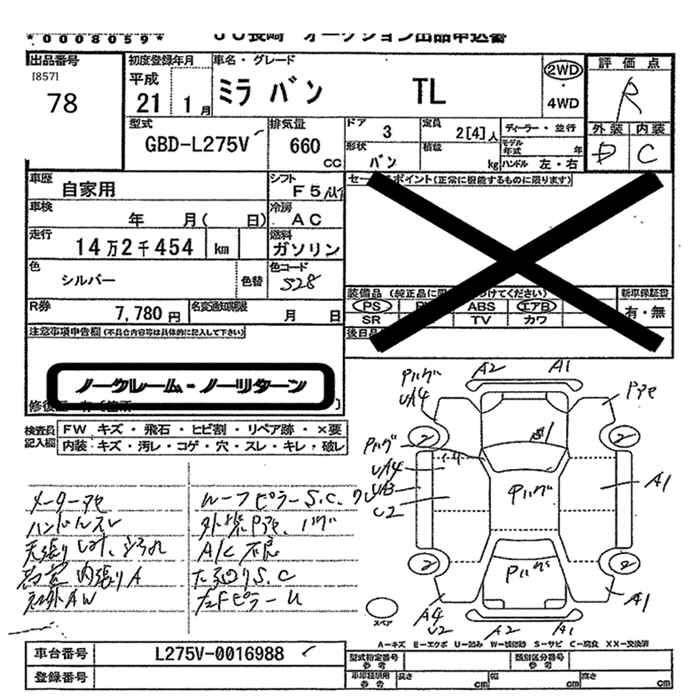 *0008059*
JU長崎 オークション出品申込書
出品番号
[857]
78
初度登録年月
平成
21 1月
車名・グレード
ミラ バン TL
2WD
4WD
評価点
R
外装 内装
D C
型式
GBD-L275V
排気量
660
CC
ドア
3
定員
2[4]人
形状
バン
積載
kg
ディーラー・並行
モデル年式 年
ハンドル 左・右
車歴
自家用
シフト
F5 MT
車検
年 月( 日)
冷房
AC
走行
14万2千454 km
燃料
ガソリン
色
シルバー
色替
色コード
S28
R券
7,780円
名変通知期限
月 日
セールスポイント(正常に機能するものに限ります)
装備品
PS ABS エアB
SR TV カワ
新車保証書
有・無
注意事項申告欄(不具合内容等は具体的に記入して下さい)
ノークレーム・ノーリターン
検査員記入欄
FW キズ・飛石・ヒビ割・リペア跡・×要
内装・キズ・汚レ・コゲ・穴・スレ・キレ・破レ
メーターアセ
ハンドルスレ
ルーフピラーS.C.
外装Pアセ、
A/C不良
内張りA
A2 A1
Pハゲ
UA4
Pアセ
2 2
S1
Pハゲ
UA4
UA3
U2
Pハゲ
A1
2 2
Pハゲ
A4
U2
A2 A1
A1
スペア
A-キズ E-エクボ U-凹み W-波板跡 S-サビ C-腐食 XX-交換済
車台番号 L275V-0016988
登録番号
型式指定番号 参考
類別区分番号 参考
車検証明用 参考
長さ cm 幅 cm 高さ cm